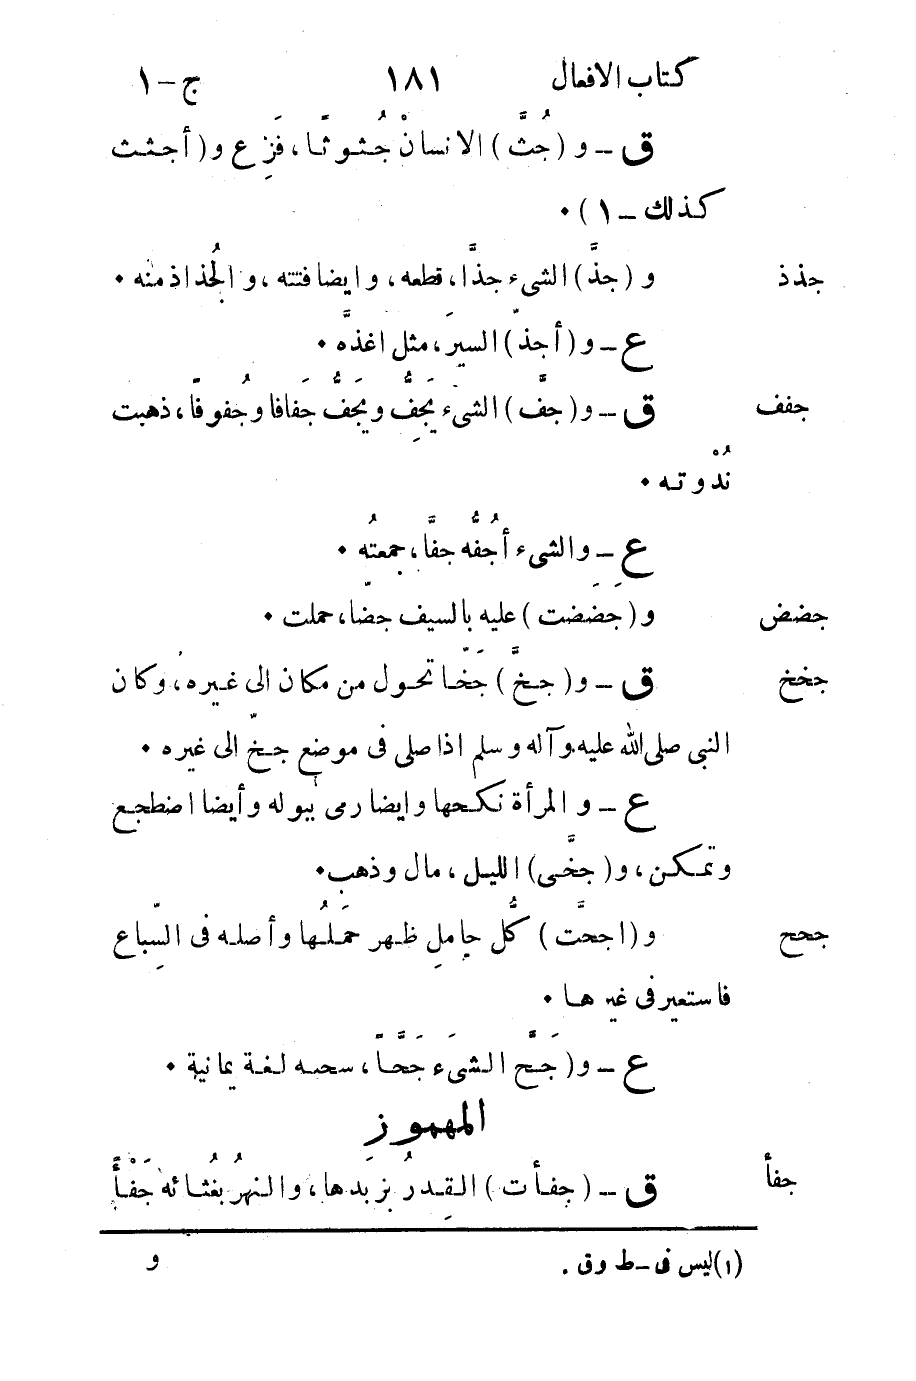 كتاب الافعال ١٨١ ج-١
ق – و (جُثَّ) الانسانُ جُثوثًا، فَزِع و(أجثث
كذلك – ١) ٠
جذذ و (جذَّ) الشىء جذًّا، قطعه، وايضا فتته، والجُذاذ منه ٠
ع – و(أجذ) السيرَ، مثل اغذّه ٠
جفف ق – و(جفّ) الشىء يَجِفُّ ويَجَفُّ جَفافا وجُفوفًا، ذهبت
نُدْوته ٠
ع – والشىء أجُفُّه جفًّا، جمعتُه ٠
جضض و (جضِضت) عليه بالسيف جضّا، حملت ٠
جخخ ق – و(جخَّ) جَخّا تحول من مكان الى غيره، وكان
النبى صلى الله عليه وآله وسلم اذا صلى فى موضع جخّ الى غيره ٠
ع – والمرأة نكحها وايضا رمى ببوله وأيضا اضطجع
وتمكن، و(جخَّى) الليل، مال وذهب ٠
جحح و(اجحّت) كُلُّ حامِلٍ ظهر حَملُها وأصله فى السِّباع
فاستعير فى غيرها ٠
ع – و(جَحَّ الشىَء جَحًّا، سحبه لغة يمانية ٠
المهموز
جفأ ق – (جفأت) القِدرُ بزَبدها، والنهرُ بغُثائه جَفْأً
(١) ليس فى – ط وق .
و